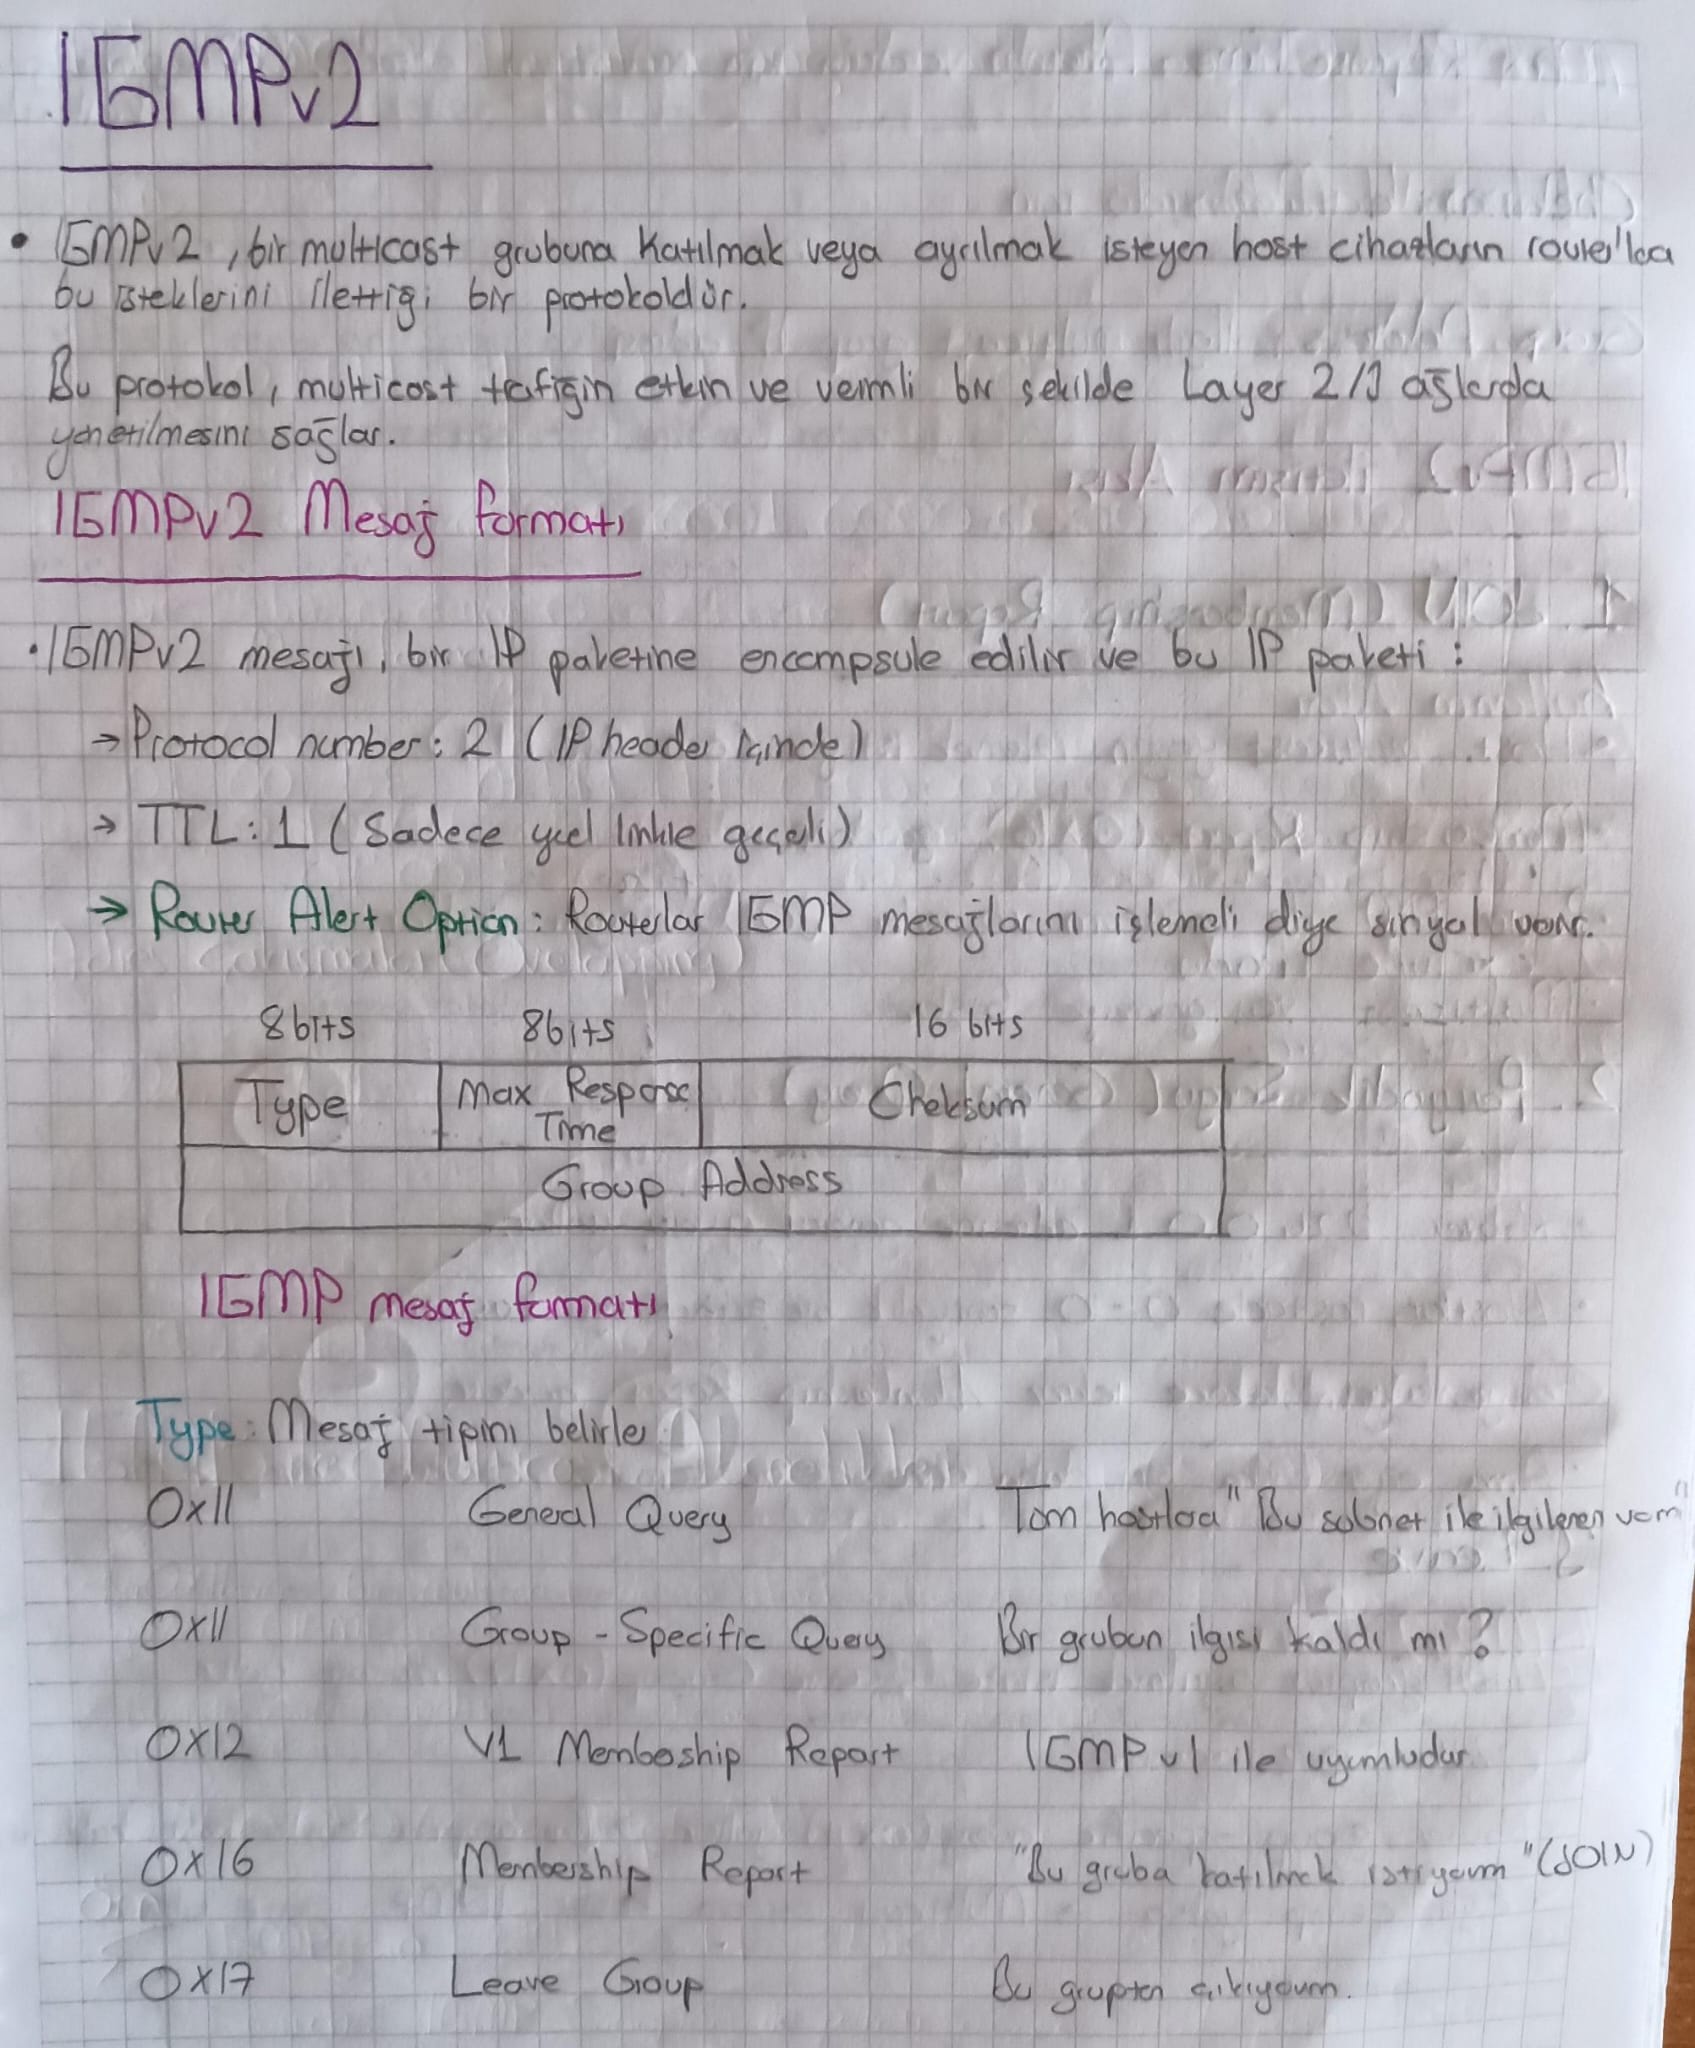 IGMPv2
• IGMPv2, bir multicast grubuna katılmak veya ayrılmak isteyen host cihazların router'lara
bu isteklerini ilettiği bir protokoldür.
Bu protokol, multicast trafiğin etkin ve verimli bir şekilde Layer 2/3 ağlarda
yönetilmesini sağlar.
IGMPv2 Mesaj formatı
• IGMPv2 mesajı, bir IP paketine encampsule edilir ve bu IP paketi :
→ Protocol number: 2 (IP header içinde)
→ TTL: 1 (Sadece yerel linkle geçerli)
→ Router Alert Option: Routerlar IGMP mesajlarını işlemeli diye sinyal verir.
8 bits 8 bits 16 bits
Type Max Response Time Cheksum
Group Address
IGMP mesaj formatı
Type: Mesaj tipini belirler
0x11 General Query Tüm hostlara "Bu subnet ile ilgilenen var mı"
0x11 Group - Specific Query Bir grubun ilgisi kaldı mı ?
0x12 V1 Membership Report IGMP v1 ile uyumludur
0x16 Membership Report "Bu gruba katılmak istiyorum" (JOIN)
0x17 Leave Group Bu gruptan çıkıyorum.